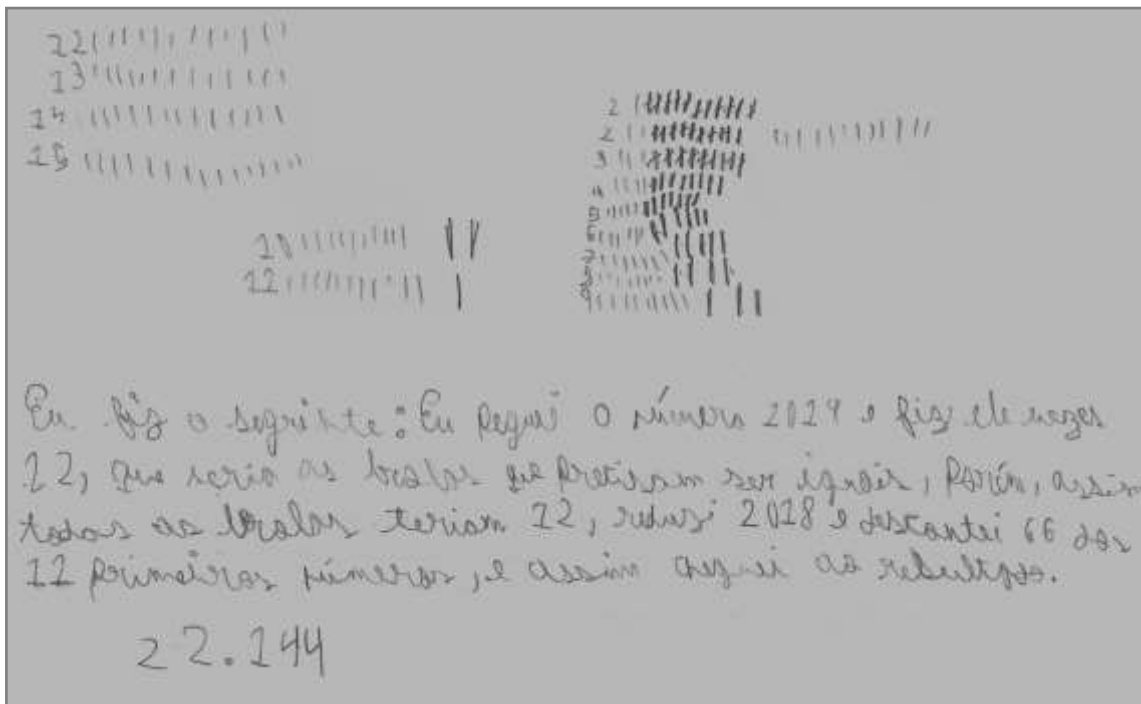 12
13
14
15
1
2
3
4
5
6
7
8
9
10
11
Eu fiz o seguinte: Eu pegui o número 2019 e fiz ele vezes
12, que seria as bolas que precisam ser iguais, porém, assim
todas as bolas teriam 12, reduzi 2018 e descontei 66 dos
11 primeiros números, e assim chegui ao resultado.
22.144